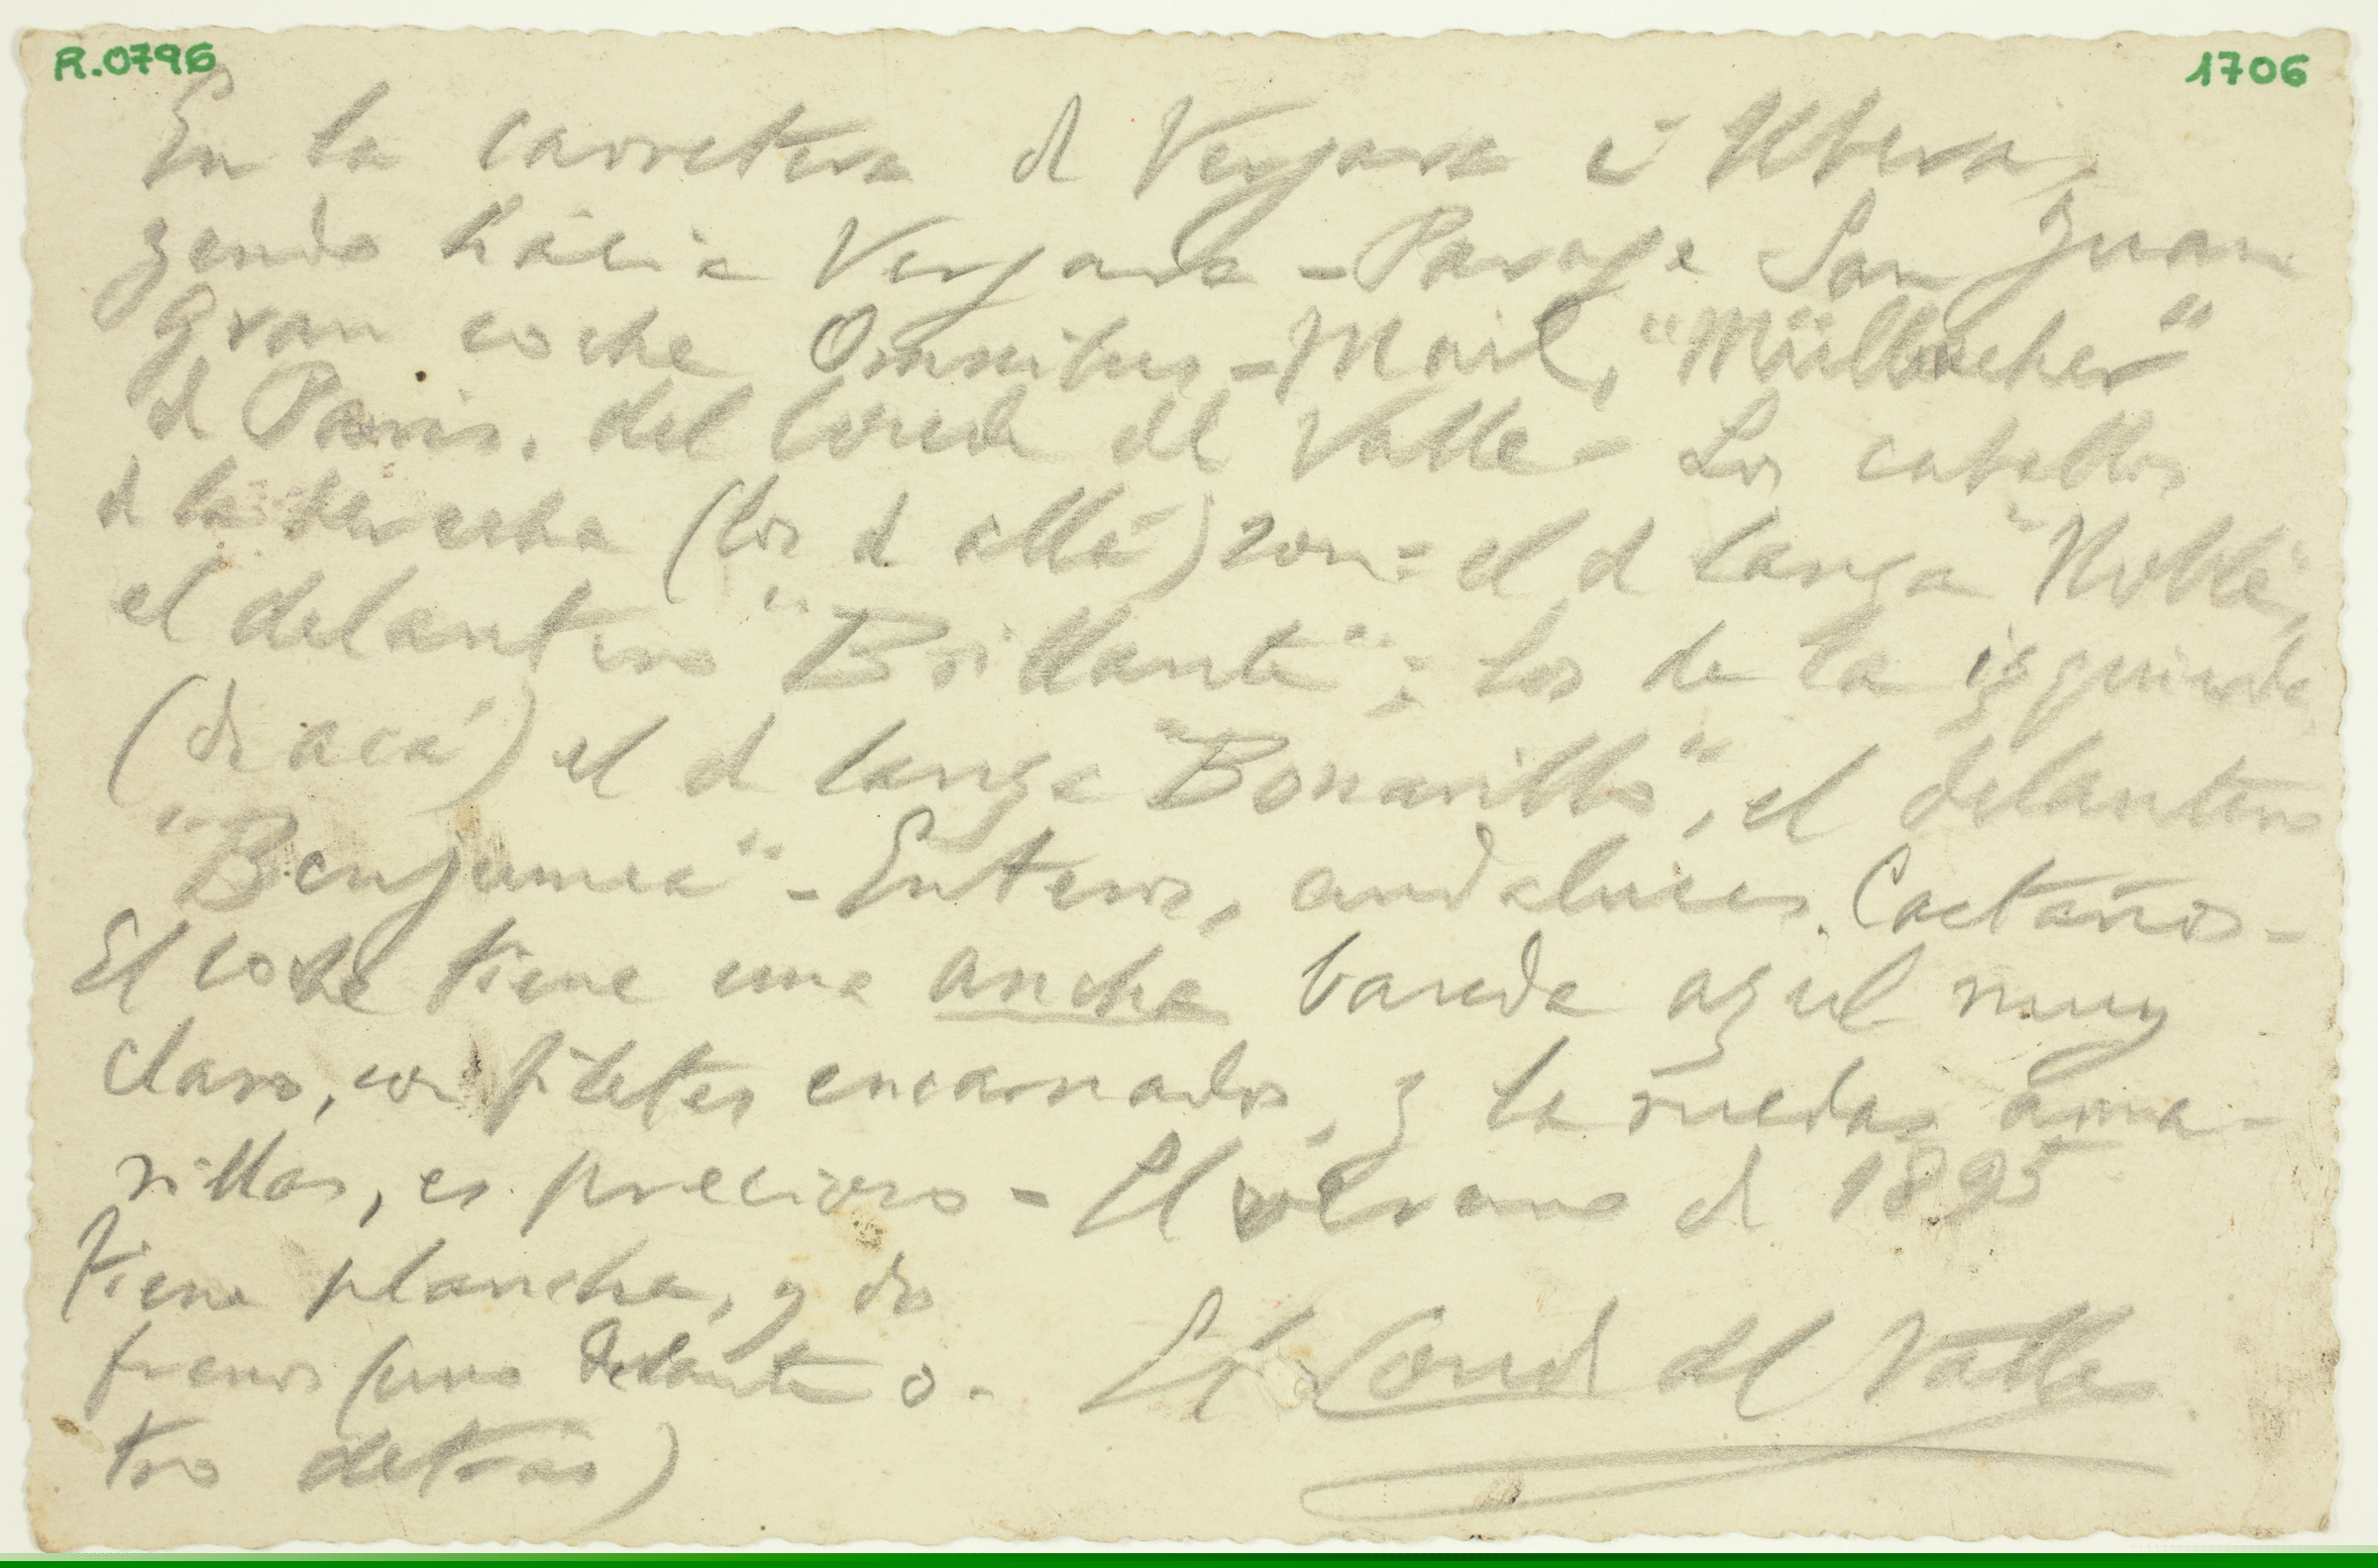 R.0796
1706
En la carretera d Vergara á Ubera,
yendo hácia Vergara - Paraje San Juan
Gran coche Omnibus - Mail, "Mülbacher"
d Paris. del Conde del Valle - Los caballos
d la derecha (los d allá) son = el d lanza "Noble",
el delantero "Brillante"; los de la izquierda
(de acá) el d lanza "Bonarillo", el delantero
"Benjumea" - Enteros, andaluces. Castaños -
El coche tiene una ancha banda azul muy
claro, con filetes encarnados, y la ruedas ama-
rillas, es precioso - El verano d 1895
tiene plancha, y dos
frenos (uno delante o-
tro detrás)
El Conde del Valle